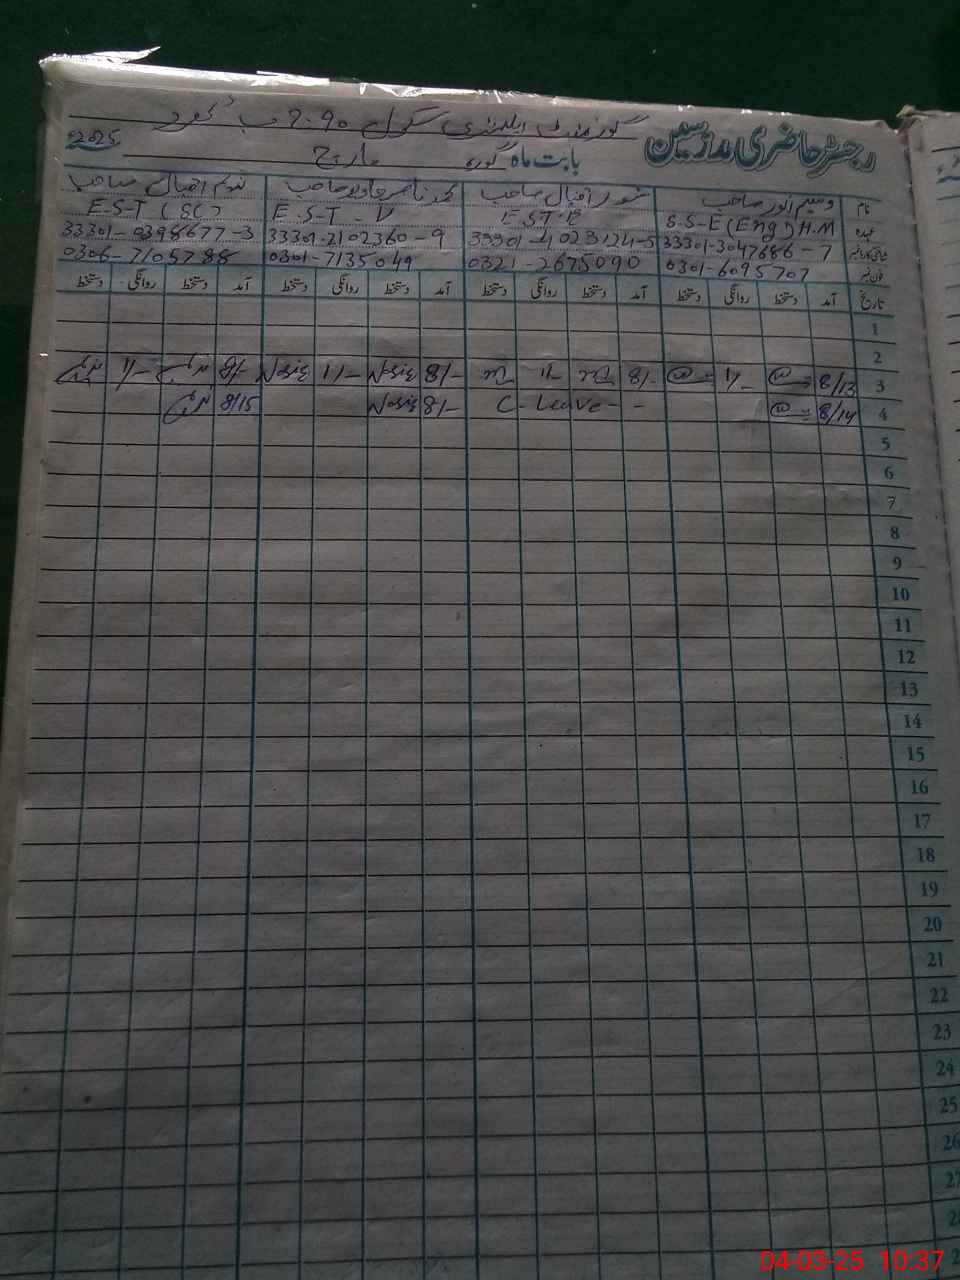 رجسٹر حاضری مدرسین گورنمنٹ ایلیمنٹری سکول
بابت ماہ مارچ 2025ء
نام وسیم انور صاحب اقبال صاحب ندیم اقبال صاحب
عہدہ S-S-E (Eng) H.M E-S-T E-S-T E-S-T (SC)
شناختی کارڈ نمبر 33301-3047686-7 33301-4023124-5 33301-2102360-9 33301-0398677-3
فون نمبر 0301-6095707 0321-2675090 0301-7135049 0306-7105788
تاریخ آمد دستخط روانگی دستخط آمد دستخط روانگی دستخط آمد دستخط روانگی دستخط آمد دستخط روانگی دستخط
1
2
3 8/13 1/- 8/- 1/- 8/- 1/- 8/- 1/-
4 8/14 C-Leave-- 8/- 8/15
5
6
7
8
9
10
11
12
13
14
15
16
17
18
19
20
21
22
23
24
25
26
27
04-03-25 10:37